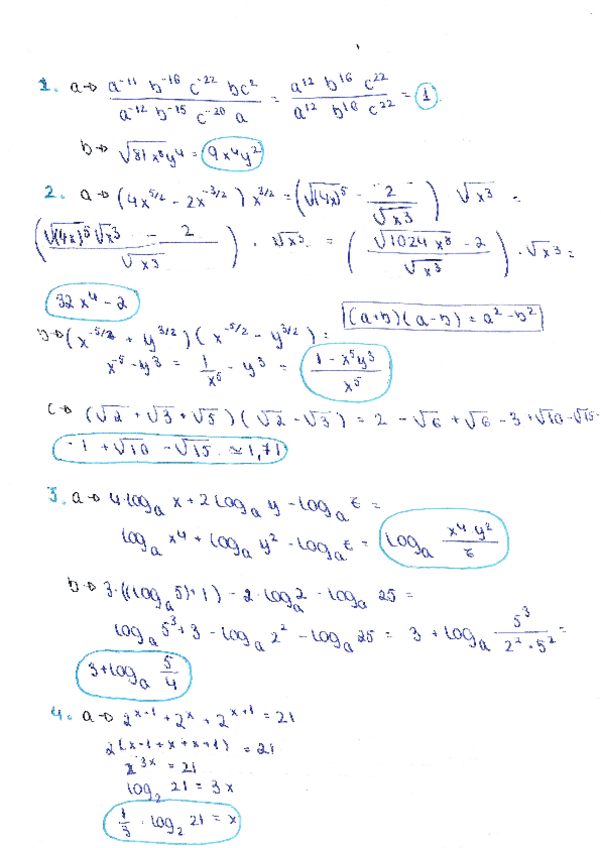 1. a→ a⁻¹¹ b⁻¹⁶ c⁻²² bc² / a⁻¹² b⁻¹⁵ c⁻²⁰ a = a¹² b¹⁶ c²² / a¹² b¹⁶ c²² = 1
b→ √81x⁸y⁴ = 9x⁴y²
2. a→ (4x^5/2 - 2x^-3/2) x^3/2 = (√(4x)⁵ - 2/√x³) √x³ =
(√(4x)⁵ √x³ - 2 / √x³) · √x³ = (√1024 x⁸ - 2 / √x³) · √x³ =
32x⁴ - 2
(a+b)(a-b) = a² - b²
b→ (x^-5/2 + y^3/2)(x^-5/2 - y^3/2) =
x⁻⁵ - y³ = 1/x⁵ - y³ = 1 - x⁵y³ / x⁵
c→ (√2 + √3 + √5)(√2 - √3) = 2 - √6 + √6 - 3 + √10 - √15
-1 + √10 - √15 ≃ 1,71
3. a→ 4·log_a x + 2 log_a y - log_a z =
log_a x⁴ + log_a y² - log_a z = log_a x⁴ y² / z
b→ 3·((log_a 5)+1) - 2·log_a 2 - log_a 25 =
log_a 5³ + 3 - log_a 2² - log_a 25 = 3 + log_a 5³ / 2² · 5² =
3 + log_a 5/4
4. a→ 2^x-1 + 2^x + 2^x+1 = 21
2^(x-1+x+x+1) = 21
2^3x = 21
log₂ 21 = 3x
1/3 · log₂ 21 = x